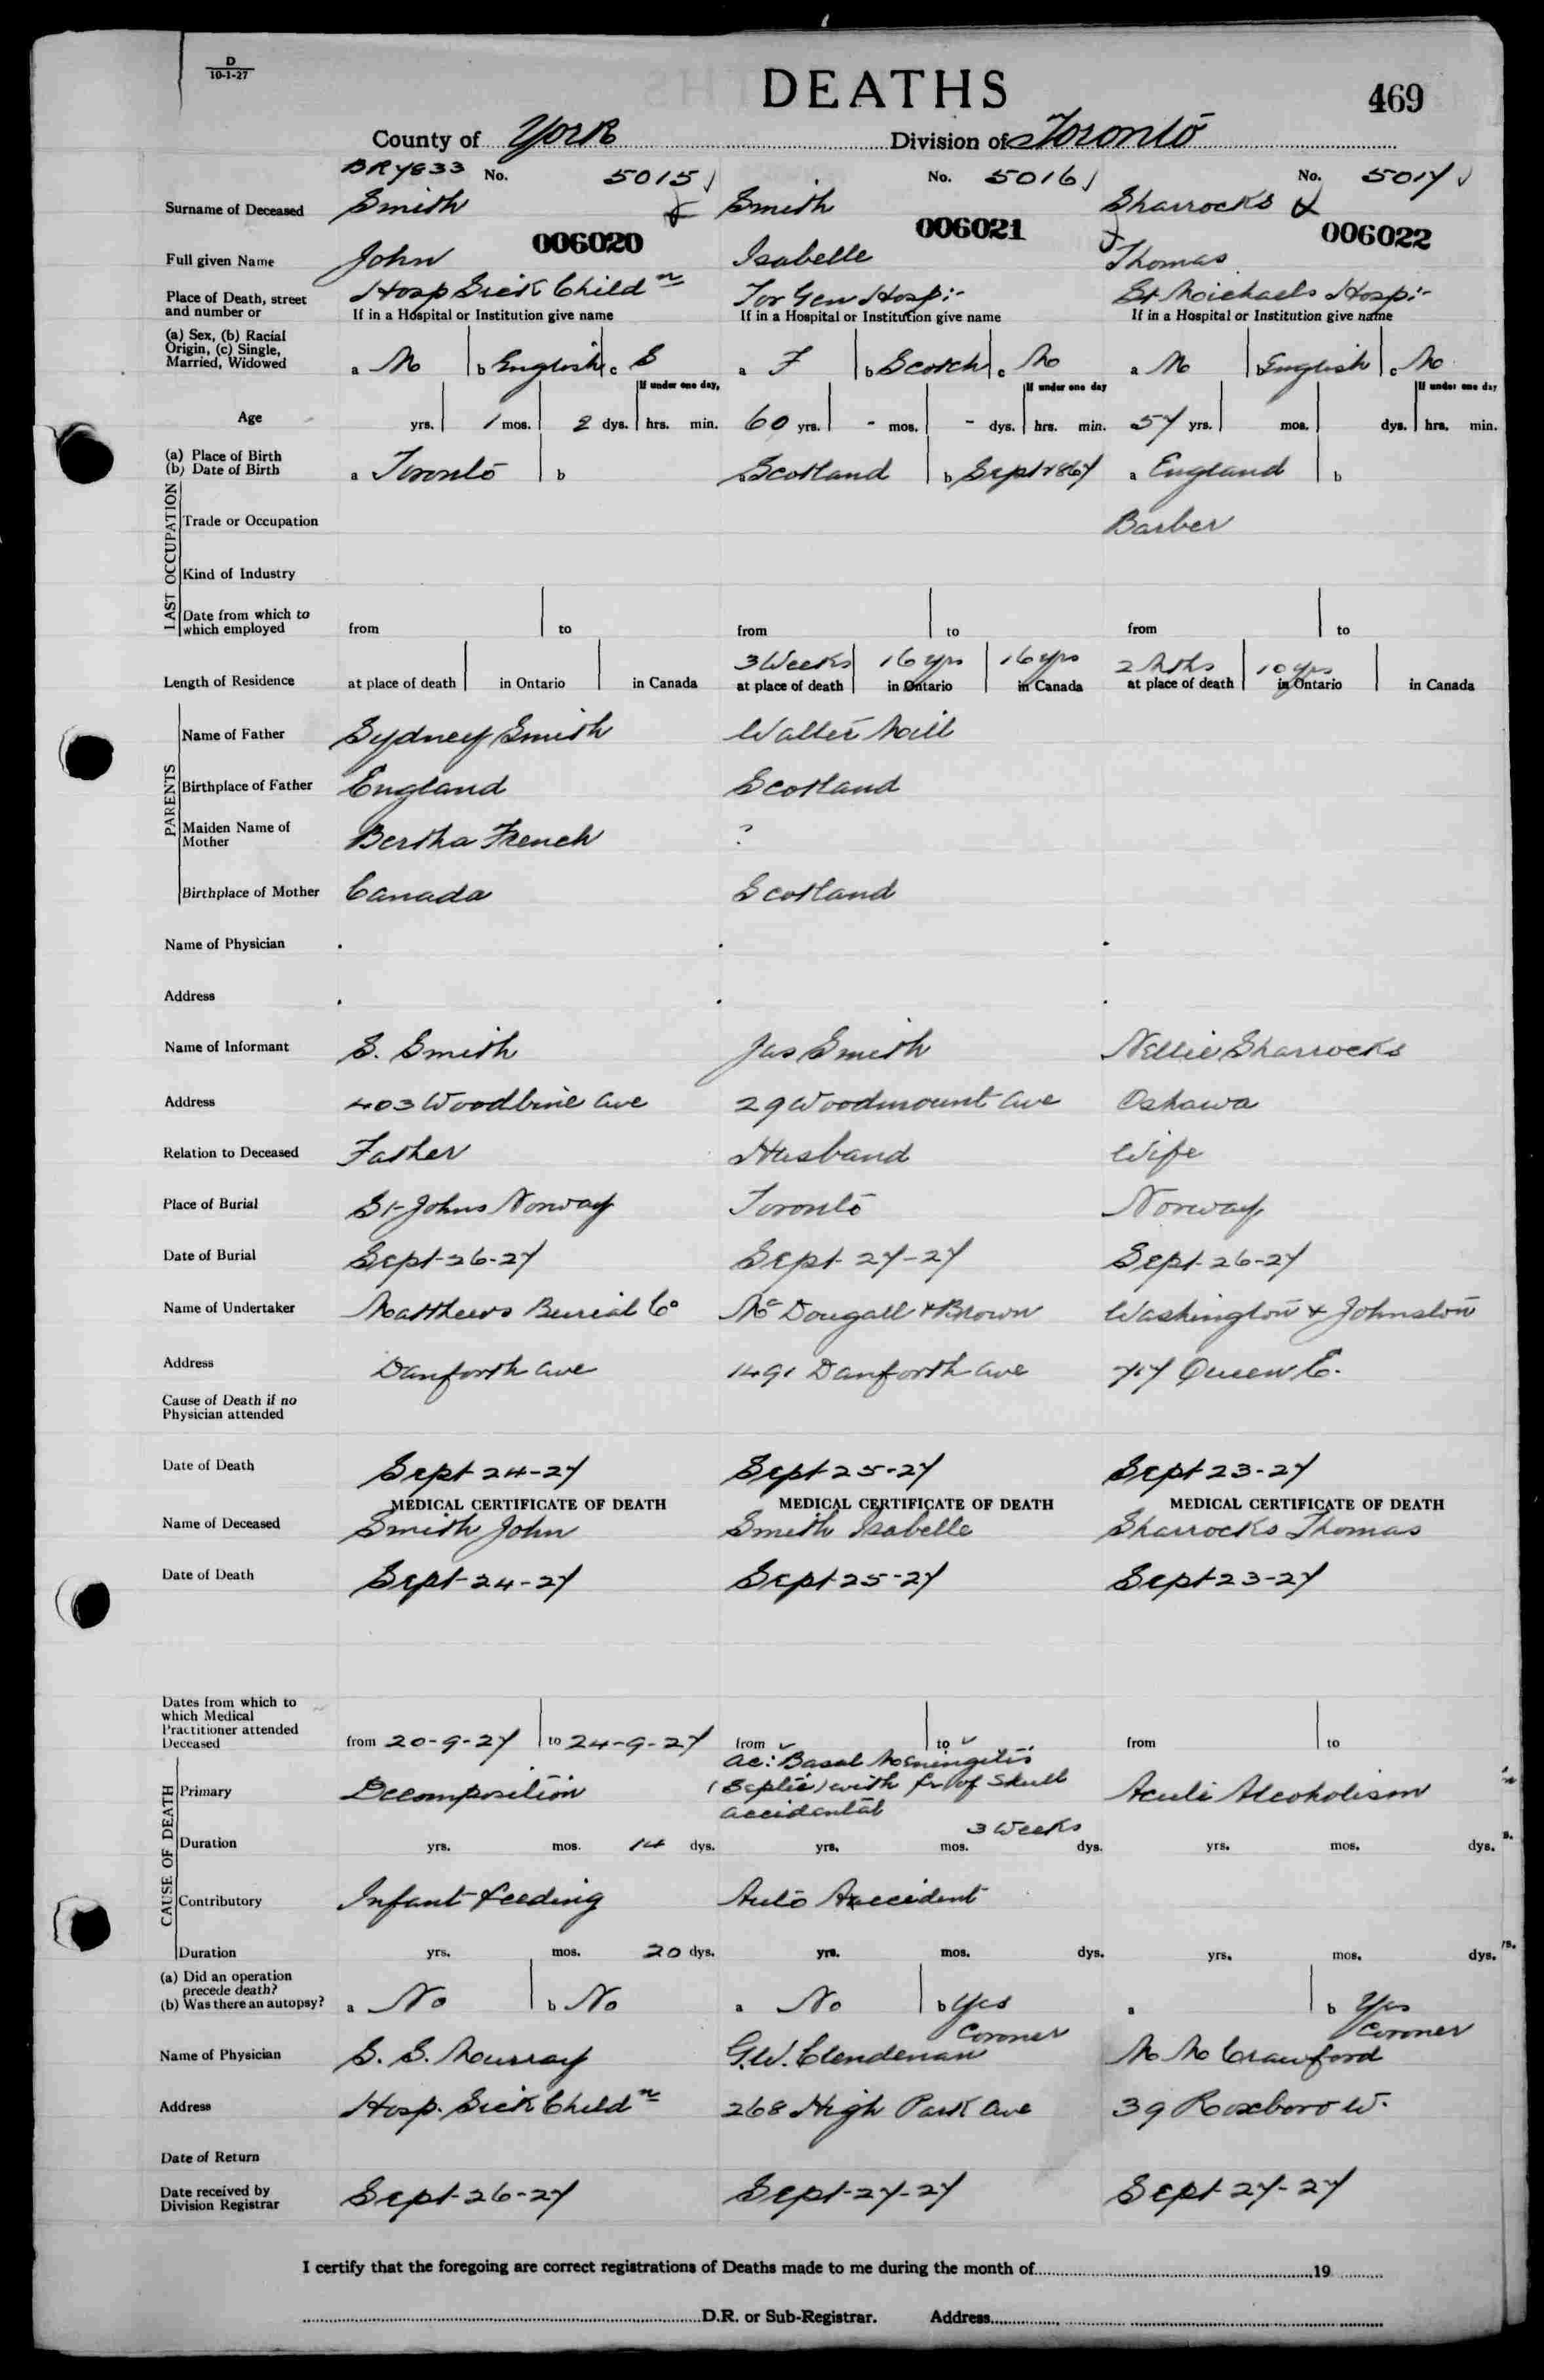 D
10-1-27
DEATHS
469
County of York Division of Toronto
BR7833 No. 5015 No. 5016 No. 5017
Surname of Deceased Smith Smith Sharrocks
006020 006021 006022
Full given Name John Isabelle Thomas
Place of Death, street and number or Hosp Sick Childn Tor Gen Hosp:- St Michaels Hosp:-
If in a Hospital or Institution give name If in a Hospital or Institution give name If in a Hospital or Institution give name
(a) Sex, (b) Racial Origin, (c) Single, Married, Widowed a M b English c S a F b Scotch c M a M b English c M
If under one day, If under one day If under one day
Age yrs. 1 mos. 2 dys. hrs. min. 60 yrs. - mos. - dys. hrs. min. 57 yrs. mos. dys. hrs. min.
(a) Place of Birth
(b) Date of Birth a Toronto b a Scotland b Sept 1867 a England b
LAST OCCUPATION
Trade or Occupation Barber
Kind of Industry
Date from which to which employed from to from to from to
3 Weeks 16 yrs 16 yrs 2 Mths 10 yrs
Length of Residence at place of death in Ontario in Canada at place of death in Ontario in Canada at place of death in Ontario in Canada
PARENTS
Name of Father Sydney Smith Walter Mill
Birthplace of Father England Scotland
Maiden Name of Mother Bertha French ?
Birthplace of Mother Canada Scotland
Name of Physician
Address
Name of Informant S. Smith Jas Smith Nellie Sharrocks
Address 403 Woodbine Ave 29 Woodmount Ave Oshawa
Relation to Deceased Father Husband Wife
Place of Burial St Johns Norway Toronto Norway
Date of Burial Sept-26-27 Sept-27-27 Sept-26-27
Name of Undertaker Matthews Burial Co McDougall & Brown Washington & Johnston
Address Danforth Ave 1491 Danforth Ave 717 Queen E.
Cause of Death if no Physician attended
Date of Death Sept-24-27 Sept-25-27 Sept-23-27
MEDICAL CERTIFICATE OF DEATH MEDICAL CERTIFICATE OF DEATH MEDICAL CERTIFICATE OF DEATH
Name of Deceased Smith John Smith Isabelle Sharrocks Thomas
Date of Death Sept-24-27 Sept-25-27 Sept-23-27
Dates from which to which Medical Practitioner attended Deceased from 20-9-27 to 24-9-27 from to from to
CAUSE OF DEATH
Ac: Basal Meningitis
Primary Decomposition (Septic) with fr of Skull Acute Alcoholism
accidental
3 Weeks
Duration yrs. mos. 14 dys. yrs. mos. dys. yrs. mos. dys.
Contributory Infant feeding Auto Accident
Duration yrs. mos. 20 dys. yrs. mos. dys. yrs. mos. dys.
(a) Did an operation precede death?
(b) Was there an autopsy? a No b No a No b Yes a b Yes
Coroner Coroner
Name of Physician S. S. Murray G.W. Clendenan M M Crawford
Address Hosp. Sick Childn 268 High Park Ave 39 Roxboro W.
Date of Return
Date received by Division Registrar Sept-26-27 Sept-27-27 Sept 27-27
I certify that the foregoing are correct registrations of Deaths made to me during the month of 19
D.R. or Sub-Registrar. Address